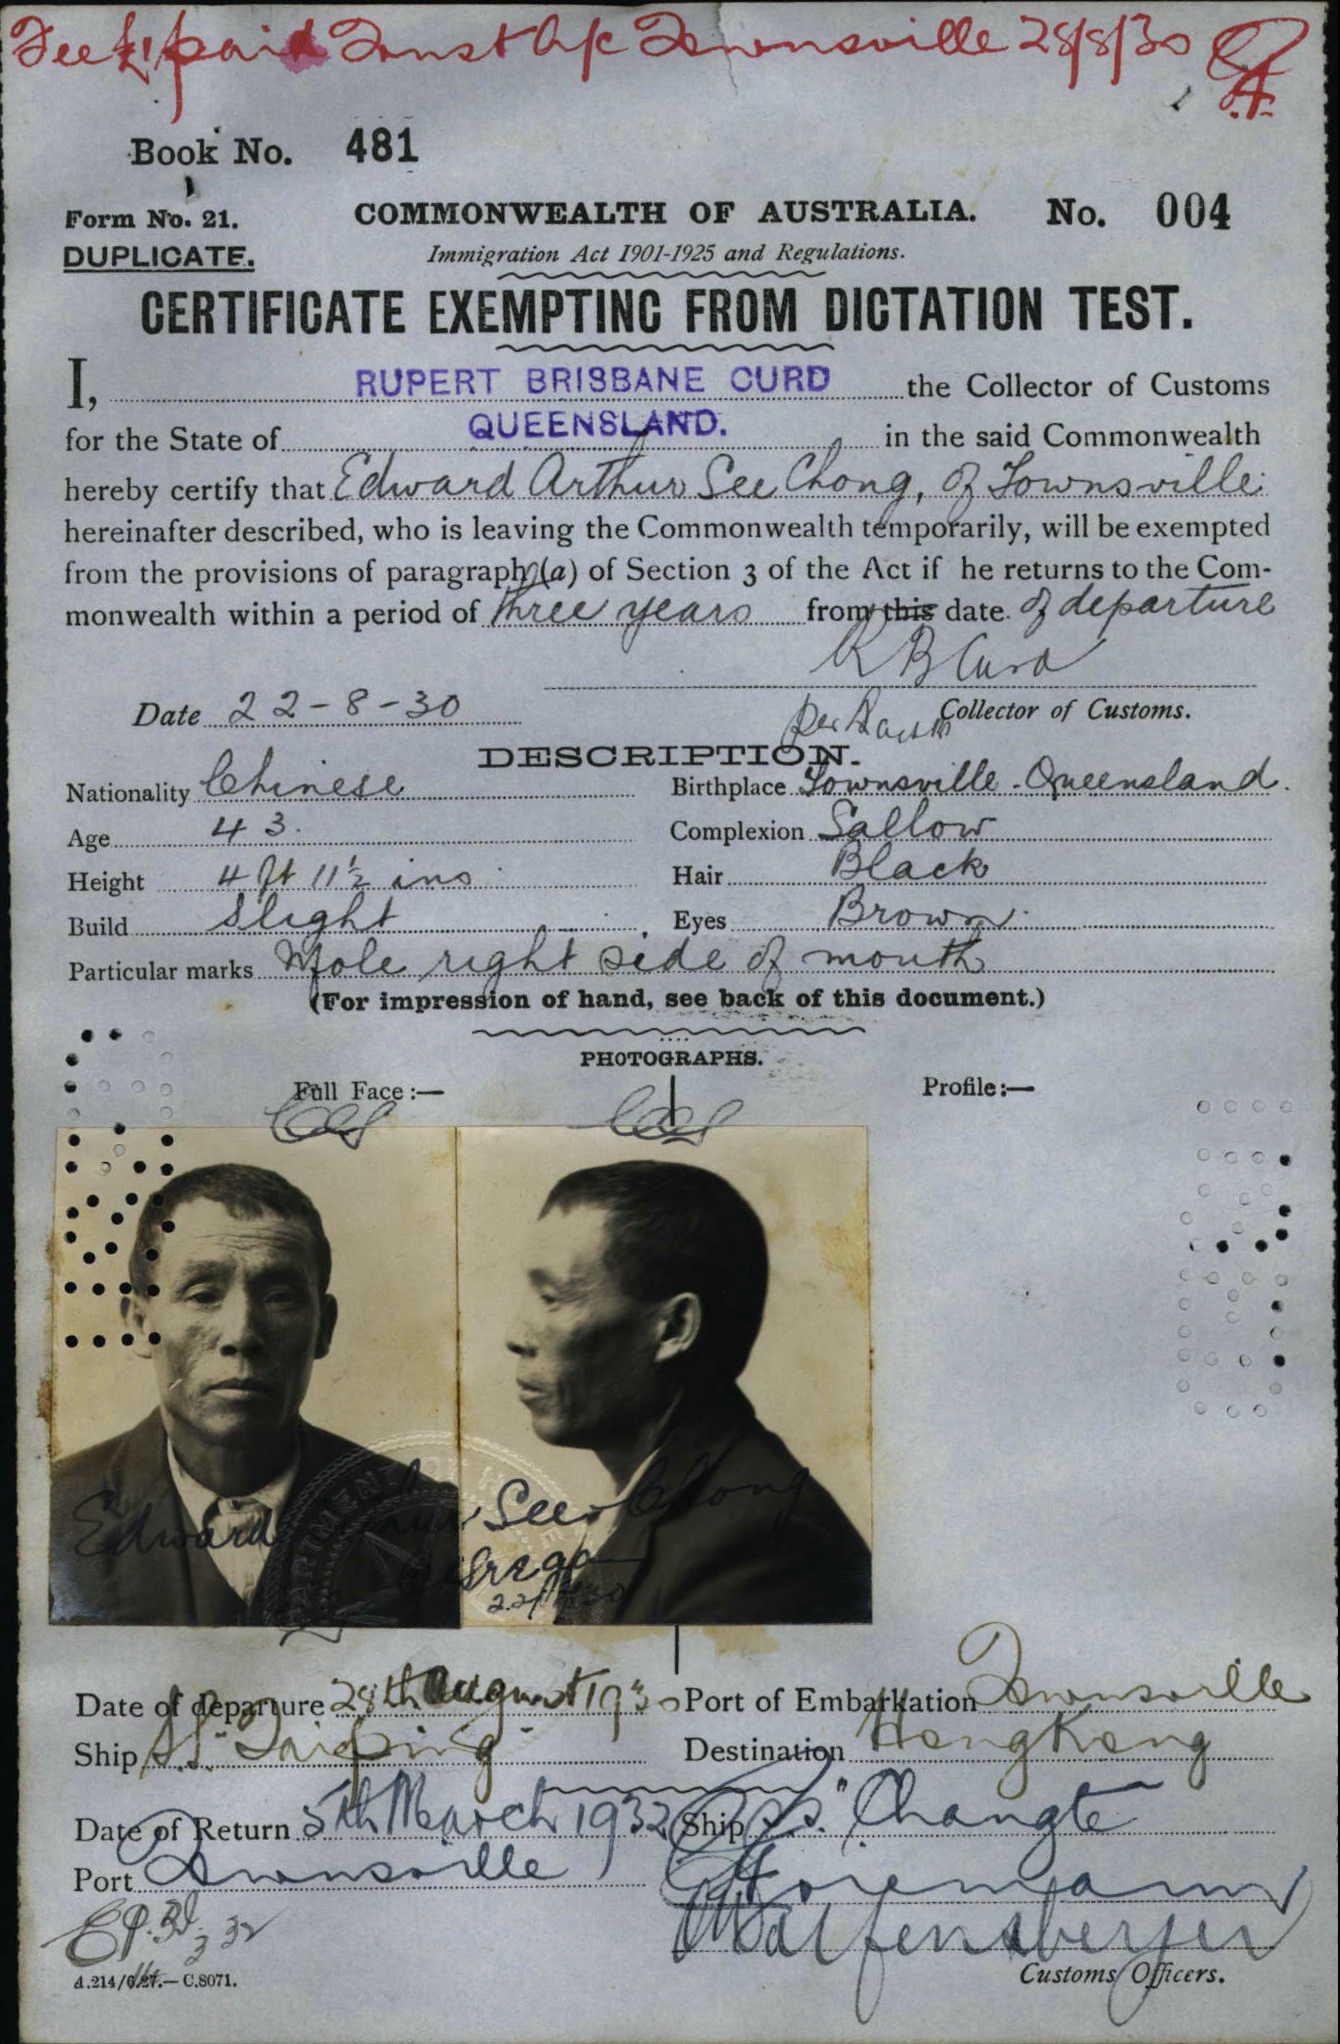 Fee £1 paid Trust A/c Townsville 28/8/30
Book No. 481
Form No. 21. COMMONWEALTH OF AUSTRALIA. No. 004
DUPLICATE. Immigration Act 1901-1925 and Regulations.
CERTIFICATE EXEMPTING FROM DICTATION TEST.
I, RUPERT BRISBANE CURD the Collector of Customs
for the State of QUEENSLAND. in the said Commonwealth
hereby certify that Edward Arthur See Chong, of Townsville
hereinafter described, who is leaving the Commonwealth temporarily, will be exempted
from the provisions of paragraph (a) of Section 3 of the Act if he returns to the Com-
monwealth within a period of three years from this date of departure
R B Curd
Date 22-8-30 per Collector of Customs.
DESCRIPTION.
Nationality Chinese Birthplace Townsville - Queensland.
Age 43. Complexion Sallow
Height 4 ft 11½ ins Hair Black
Build Slight Eyes Brown
Particular marks Mole right side of mouth
(For impression of hand, see back of this document.)
PHOTOGRAPHS.
Full Face:— Profile:—
Edward Arthur See Chong
Date of departure 28th August 1930 Port of Embarkation Townsville
Ship S.S. "Taiping" Destination Hong Kong
Date of Return 5th March 1932 Ship S.S. "Changte"
Port Townsville
Customs Officers.
d.214/6.27.—C.8071.